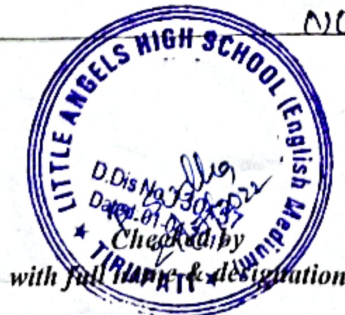 LITTLE ANGELS HIGH SCHOOL (English Medium)
D.Dis No.
Dated. 01
★ TIRUPATI ★
Checked by
with full name & designation